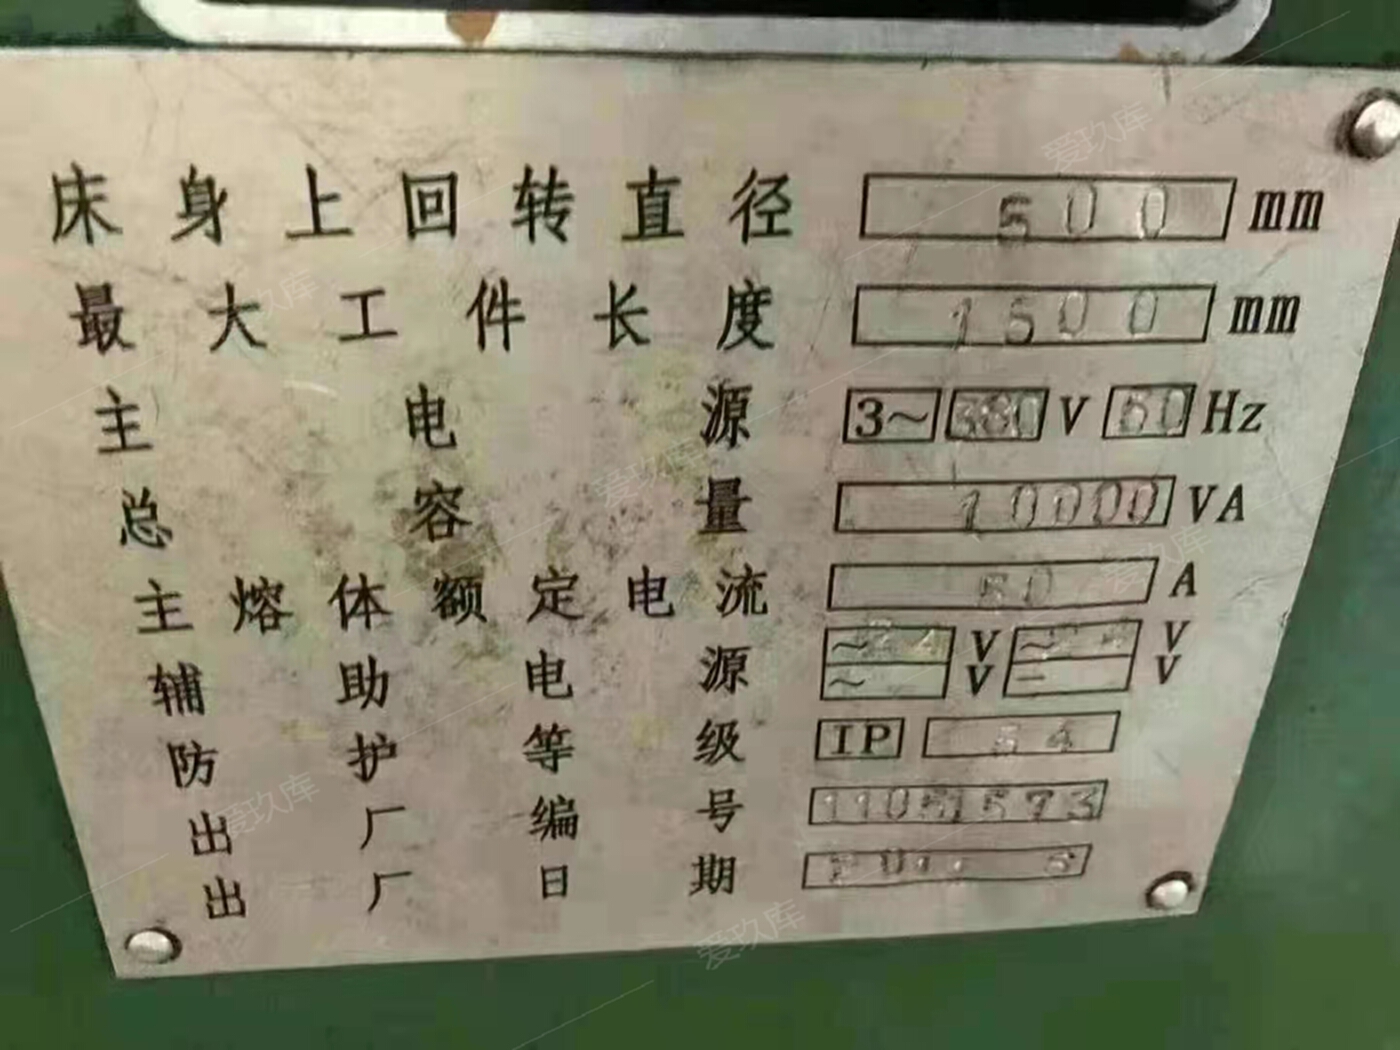 床身上回转直径 500 mm
最大工件长度 1500 mm
主电源 3~ 380 V 50 Hz
总容量 10000 VA
主熔体额定电流 50 A
辅助电源 ~24 V ~ V
~ V - V
防护等级 IP 54
出厂编号 11051573
出厂日期
爱玖库
爱玖库
爱玖库
爱玖库
爱玖库
爱玖库